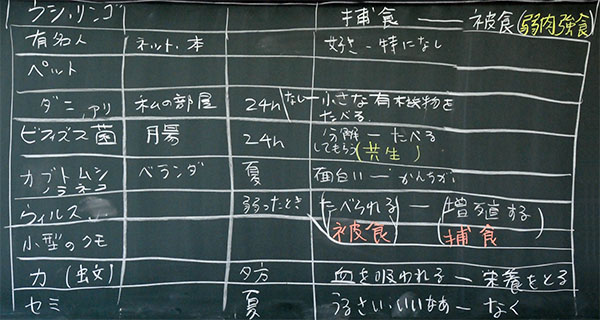 ウシ,リンゴ 捕食 ― 被食(弱肉強食)
有名人 ネット・本 好き - 特になし
ペルト
ダニ,アリ 私の部屋 24h なし ― 小さな有機物を
たべる
ビフィズス菌 腸 24h 分解 ― たべる
してもらう(共生)
カブトムシ ベランダ 夏 面白い ― かんちがい
ノラネコ
ウィルス 弱ったとき (たべられる ― 増殖する)
被食 捕食
小型のクモ
カ(蚊) 夕方 血を吸われる ― 栄養をとる
セミ 夏 うるさい・いいなあ ― なく